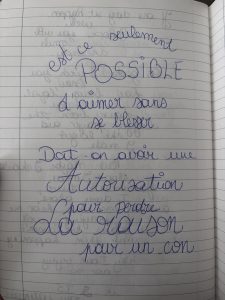 est ce seulement
POSSIBLE
d'aimer sans
se blesser
Doit-on avoir une
Autorisation
pour perdre
La raison
pour un con